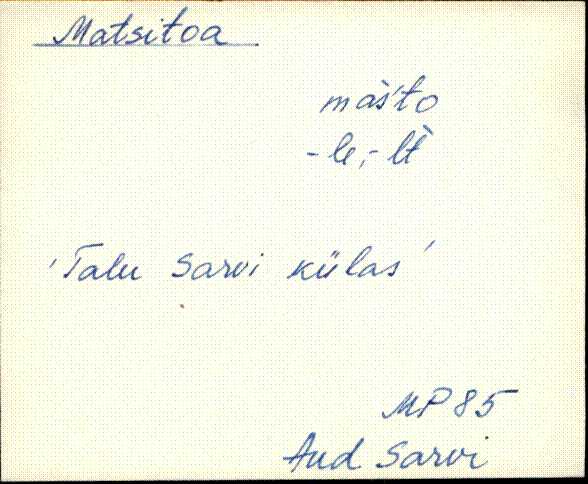 Matsitoa
mäš'to
-le, -lt̀
'Talu Sarvi külas'
MP 85
Aud Sarvi